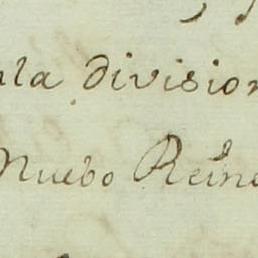 la division
Nuebo Reino